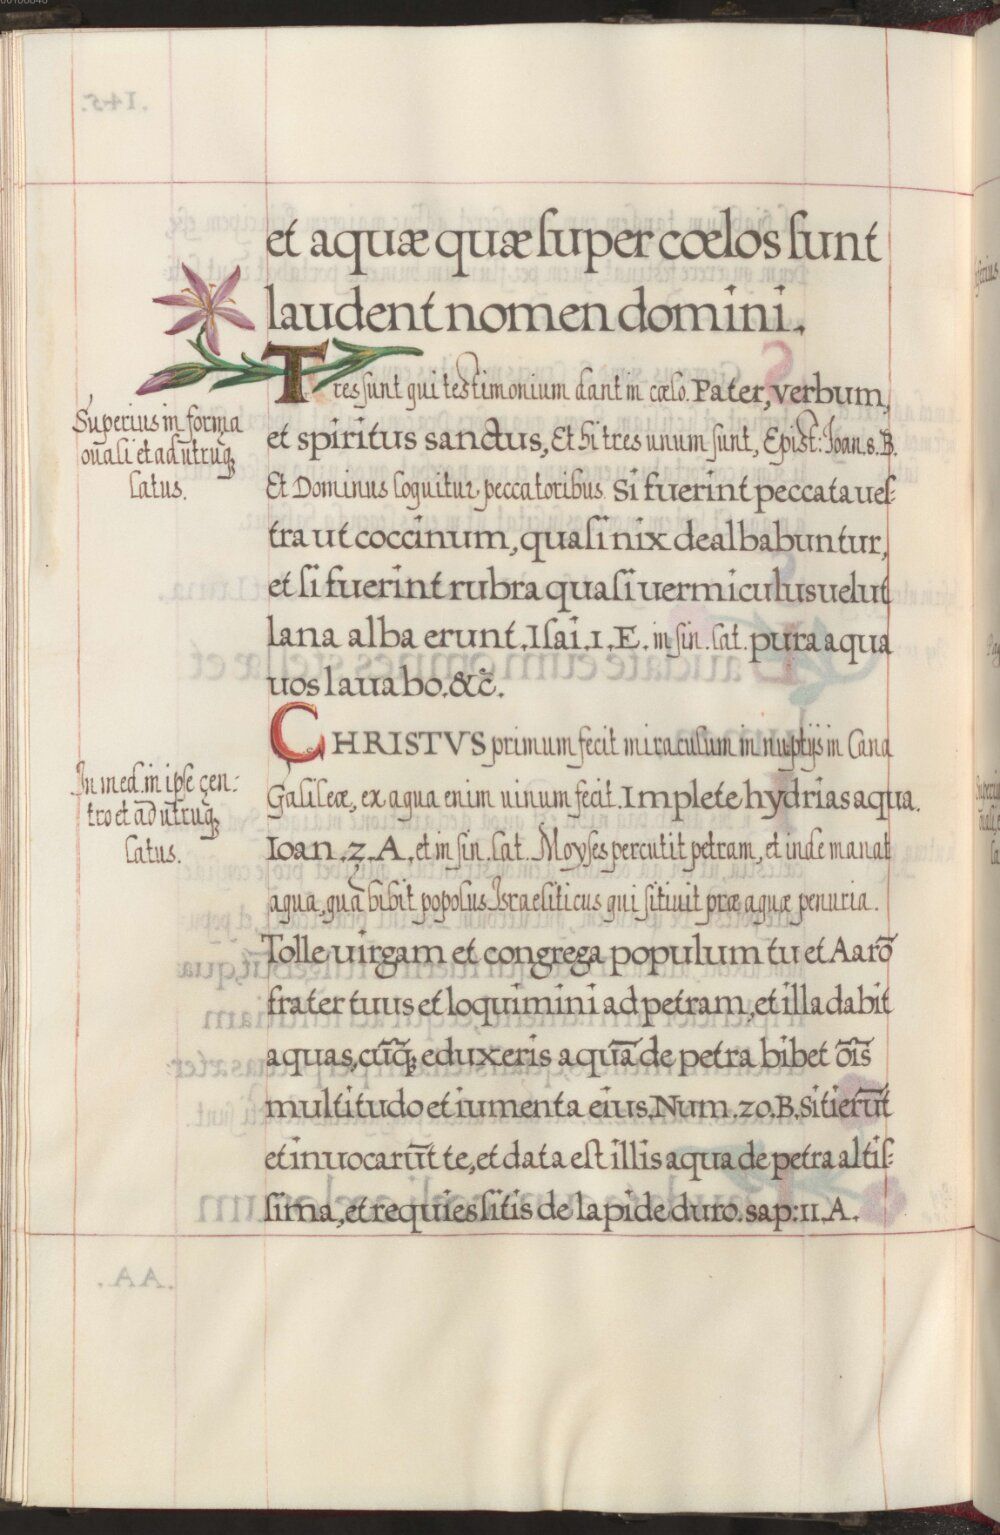 et aquæ quæ super cœlos sunt
laudent nomen domini.
Tres sunt qui testimonium dant in cœlo. Pater, verbum,
Superius in forma
ouali et ad utruq;
latus.
et spiritus sanctus, Et hi tres unum sunt, Epist: Ioan. s. B.
Et Dominus loquitur peccatoribus. Si fuerint peccata ues-
tra ut coccinum, quasi nix dealbabuntur,
et si fuerint rubra quasi uermiculus uelut
lana alba erunt. Isai. 1. E. in sin. lat. pura aqua
uos lauabo. &c̃.
CHRISTVS primum fecit miraculum in nuptijs in Cana
In med. in ipse çen-
tro et ad utruq;
latus.
Galileæ, ex aqua enim uinum fecit. Implete hydrias aqua.
Ioan. 2. A. et in sin. lat. Moyses percutit petram, et inde manat
aqua, quā bibit popolus Israeliticus qui sitiuit præ aquæ penuria.
Tolle uirgam et congrega populum tu et Aarō
frater tuus et loquimini ad petram, et illa dabit
aquas, cūq; eduxeris aquā de petra bibet ōīs
multitudo et iumenta eius. Num. 20. B. Sitierūt
et inuocarūt te, et data est illis aqua de petra altis-
sima, et requies sitis de lapide duro. sap: 11. A.